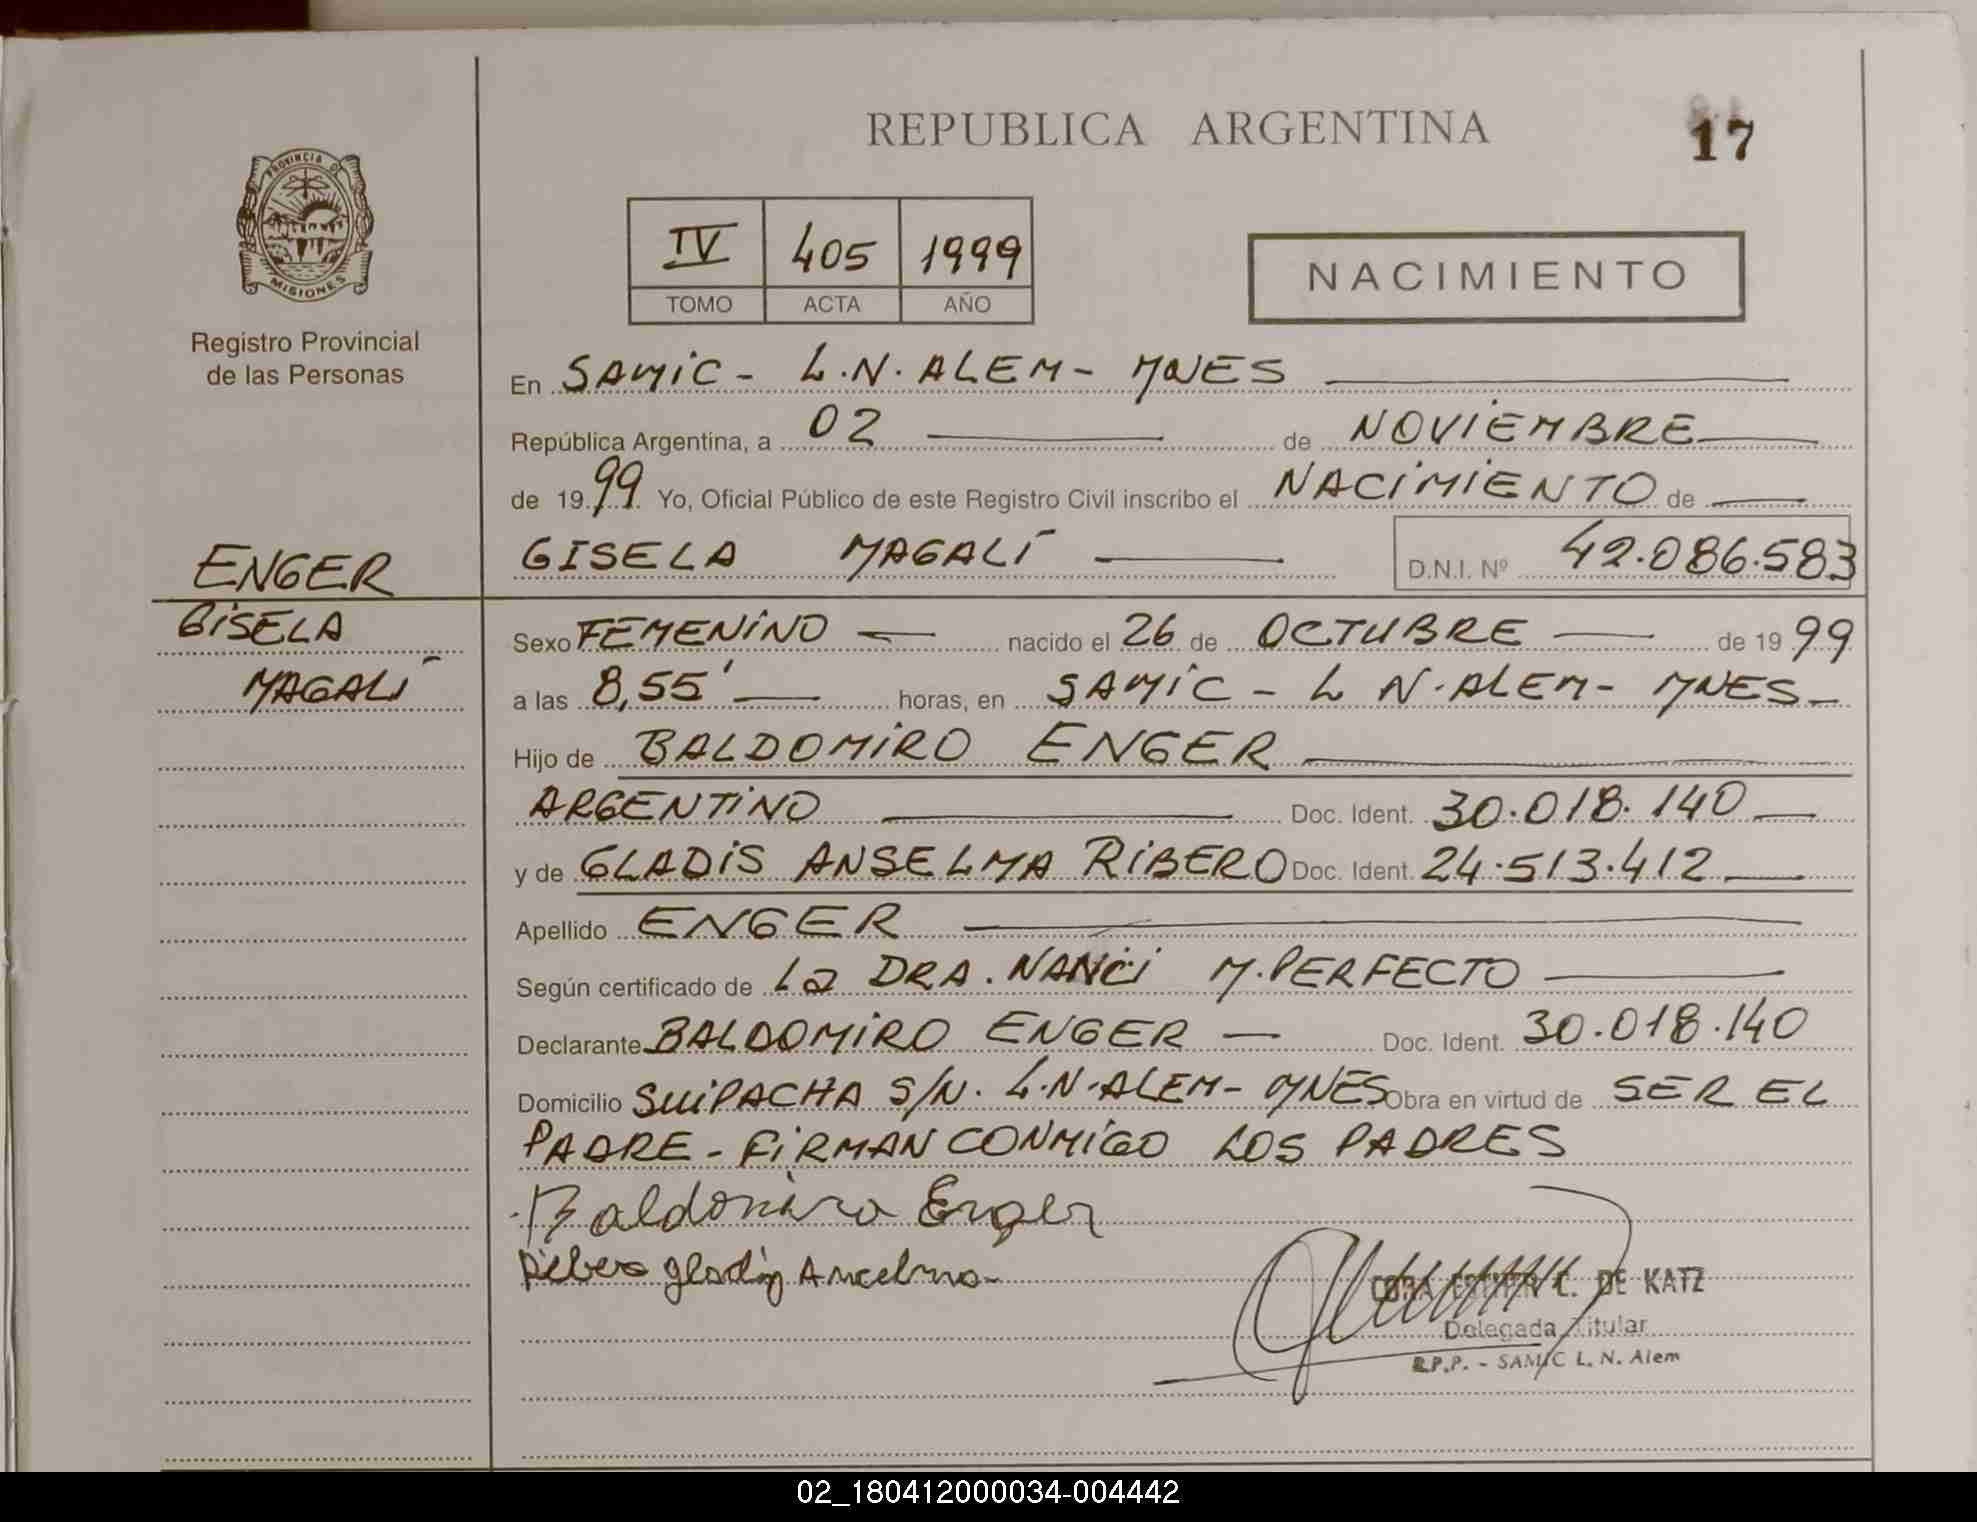 REPUBLICA ARGENTINA
17
PROVINCIA DE
MISIONES
Registro Provincial
de las Personas
IV 405 1999
TOMO ACTA AÑO
NACIMIENTO
En SAMIC - L.N. ALEM - MNES
República Argentina, a 02 de NOVIEMBRE
de 1999 Yo, Oficial Público de este Registro Civil inscribo el NACIMIENTO de
GISELA MAGALÍ D.N.I. Nº 42.086.583
ENGER
GISELA
MAGALÍ
Sexo FEMENINO nacido el 26 de OCTUBRE de 1999
a las 8,55' horas, en SAMIC - L N. ALEM - MNES -
Hijo de BALDOMIRO ENGER
ARGENTINO Doc. Ident. 30.018.140
y de GLADIS ANSELMA RIBERO Doc. Ident. 24.513.412
Apellido ENGER
Según certificado de La DRA. NANCI M. PERFECTO
Declarante BALDOMIRO ENGER Doc. Ident. 30.018.140
Domicilio SUIPACHA S/N. L.N. ALEM - MNES Obra en virtud de SER EL
PADRE - FIRMAN CONMIGO LOS PADRES
Baldomiro Enger
Ribero Gladis Ancelma
ESTHER C. DE KATZ
Delegada Titular
R.P.P. - SAMIC L. N. Alem
02_180412000034-004442